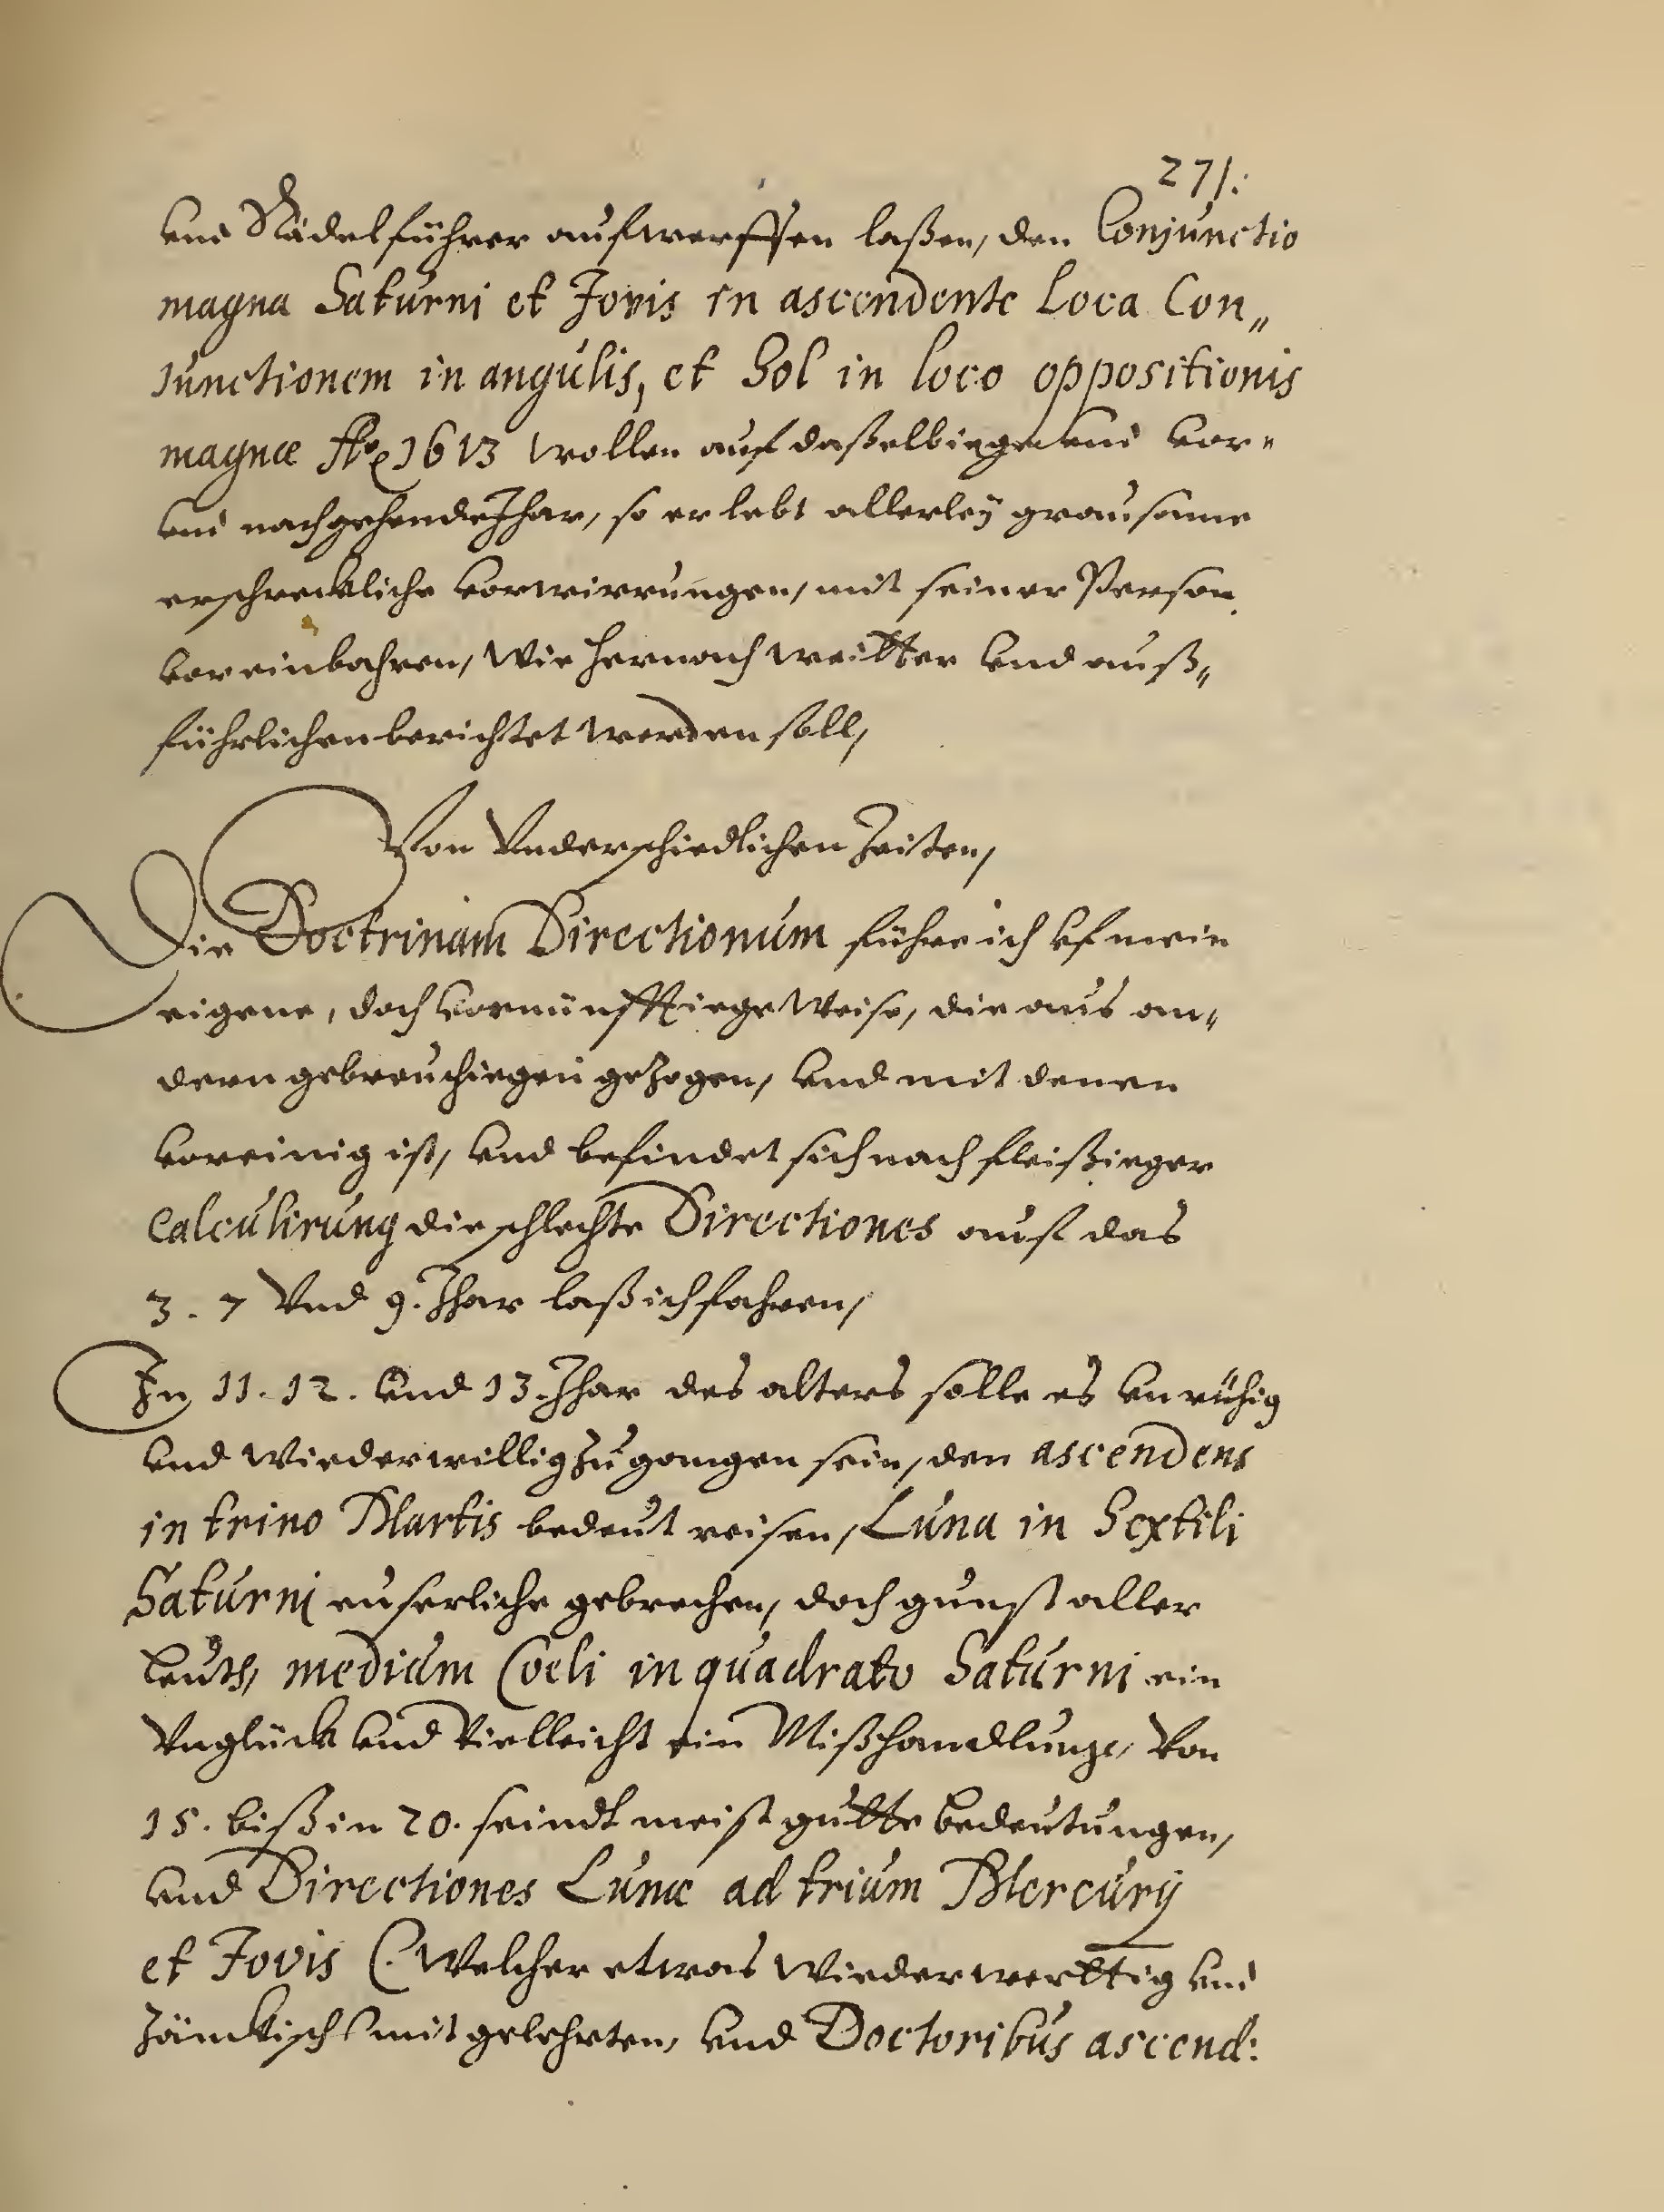 271.
vnd Rädelführer aufwerffen laßen, den Conjunctio
magna Saturni et Jovis in ascendente Loca Con„
junctionem in angulis, et Sol in loco oppositionis
magnæ Aō 1613 wollen auf daßelbiege vnd vor„
vnd nachgehende Jhar, so er lebt allerley grausame
erschreckliche vorwirrungen, mit seiner Person
voreinbahren, wie hernach weitter vnd auß„
führlichen berichtet werden soll,
Von Vnderschiedlichen Zeiten,
Die Doctrinam Directionum führe ich vf mein
eigene, doch vornünfftiege weise, die aus an„
dern gebreuchiegen gezogen, vnd mit denen
voreinig ist, vnd befindet sich nach fleißieger
Calculirung die schlechte Directiones auf das
3. 7 Vnd 9. Jhar laß ich fahren,
In 11. 12. vnd 13. Jhar des alters solle es vnruhig
vnd wiederwillig zugangen sein, den ascendens
in trino Martis bedeut reisen, Luna in Sextili
Saturni euserliche gebrechen, doch gunst aller
Leuth, medium Coeli in quadrato Saturni ein
Vnglück vnd Vielleicht ein Mißhandlunge, Von
15. biß in 20. seindt meist gutte bedeutungen,
vnd Directiones Lunæ ad trium Mercurij
et Jovis (. Welcher etwas wiederwerttig vnd
zänckisch) mit gelehrten, vnd Doctoribus ascend: